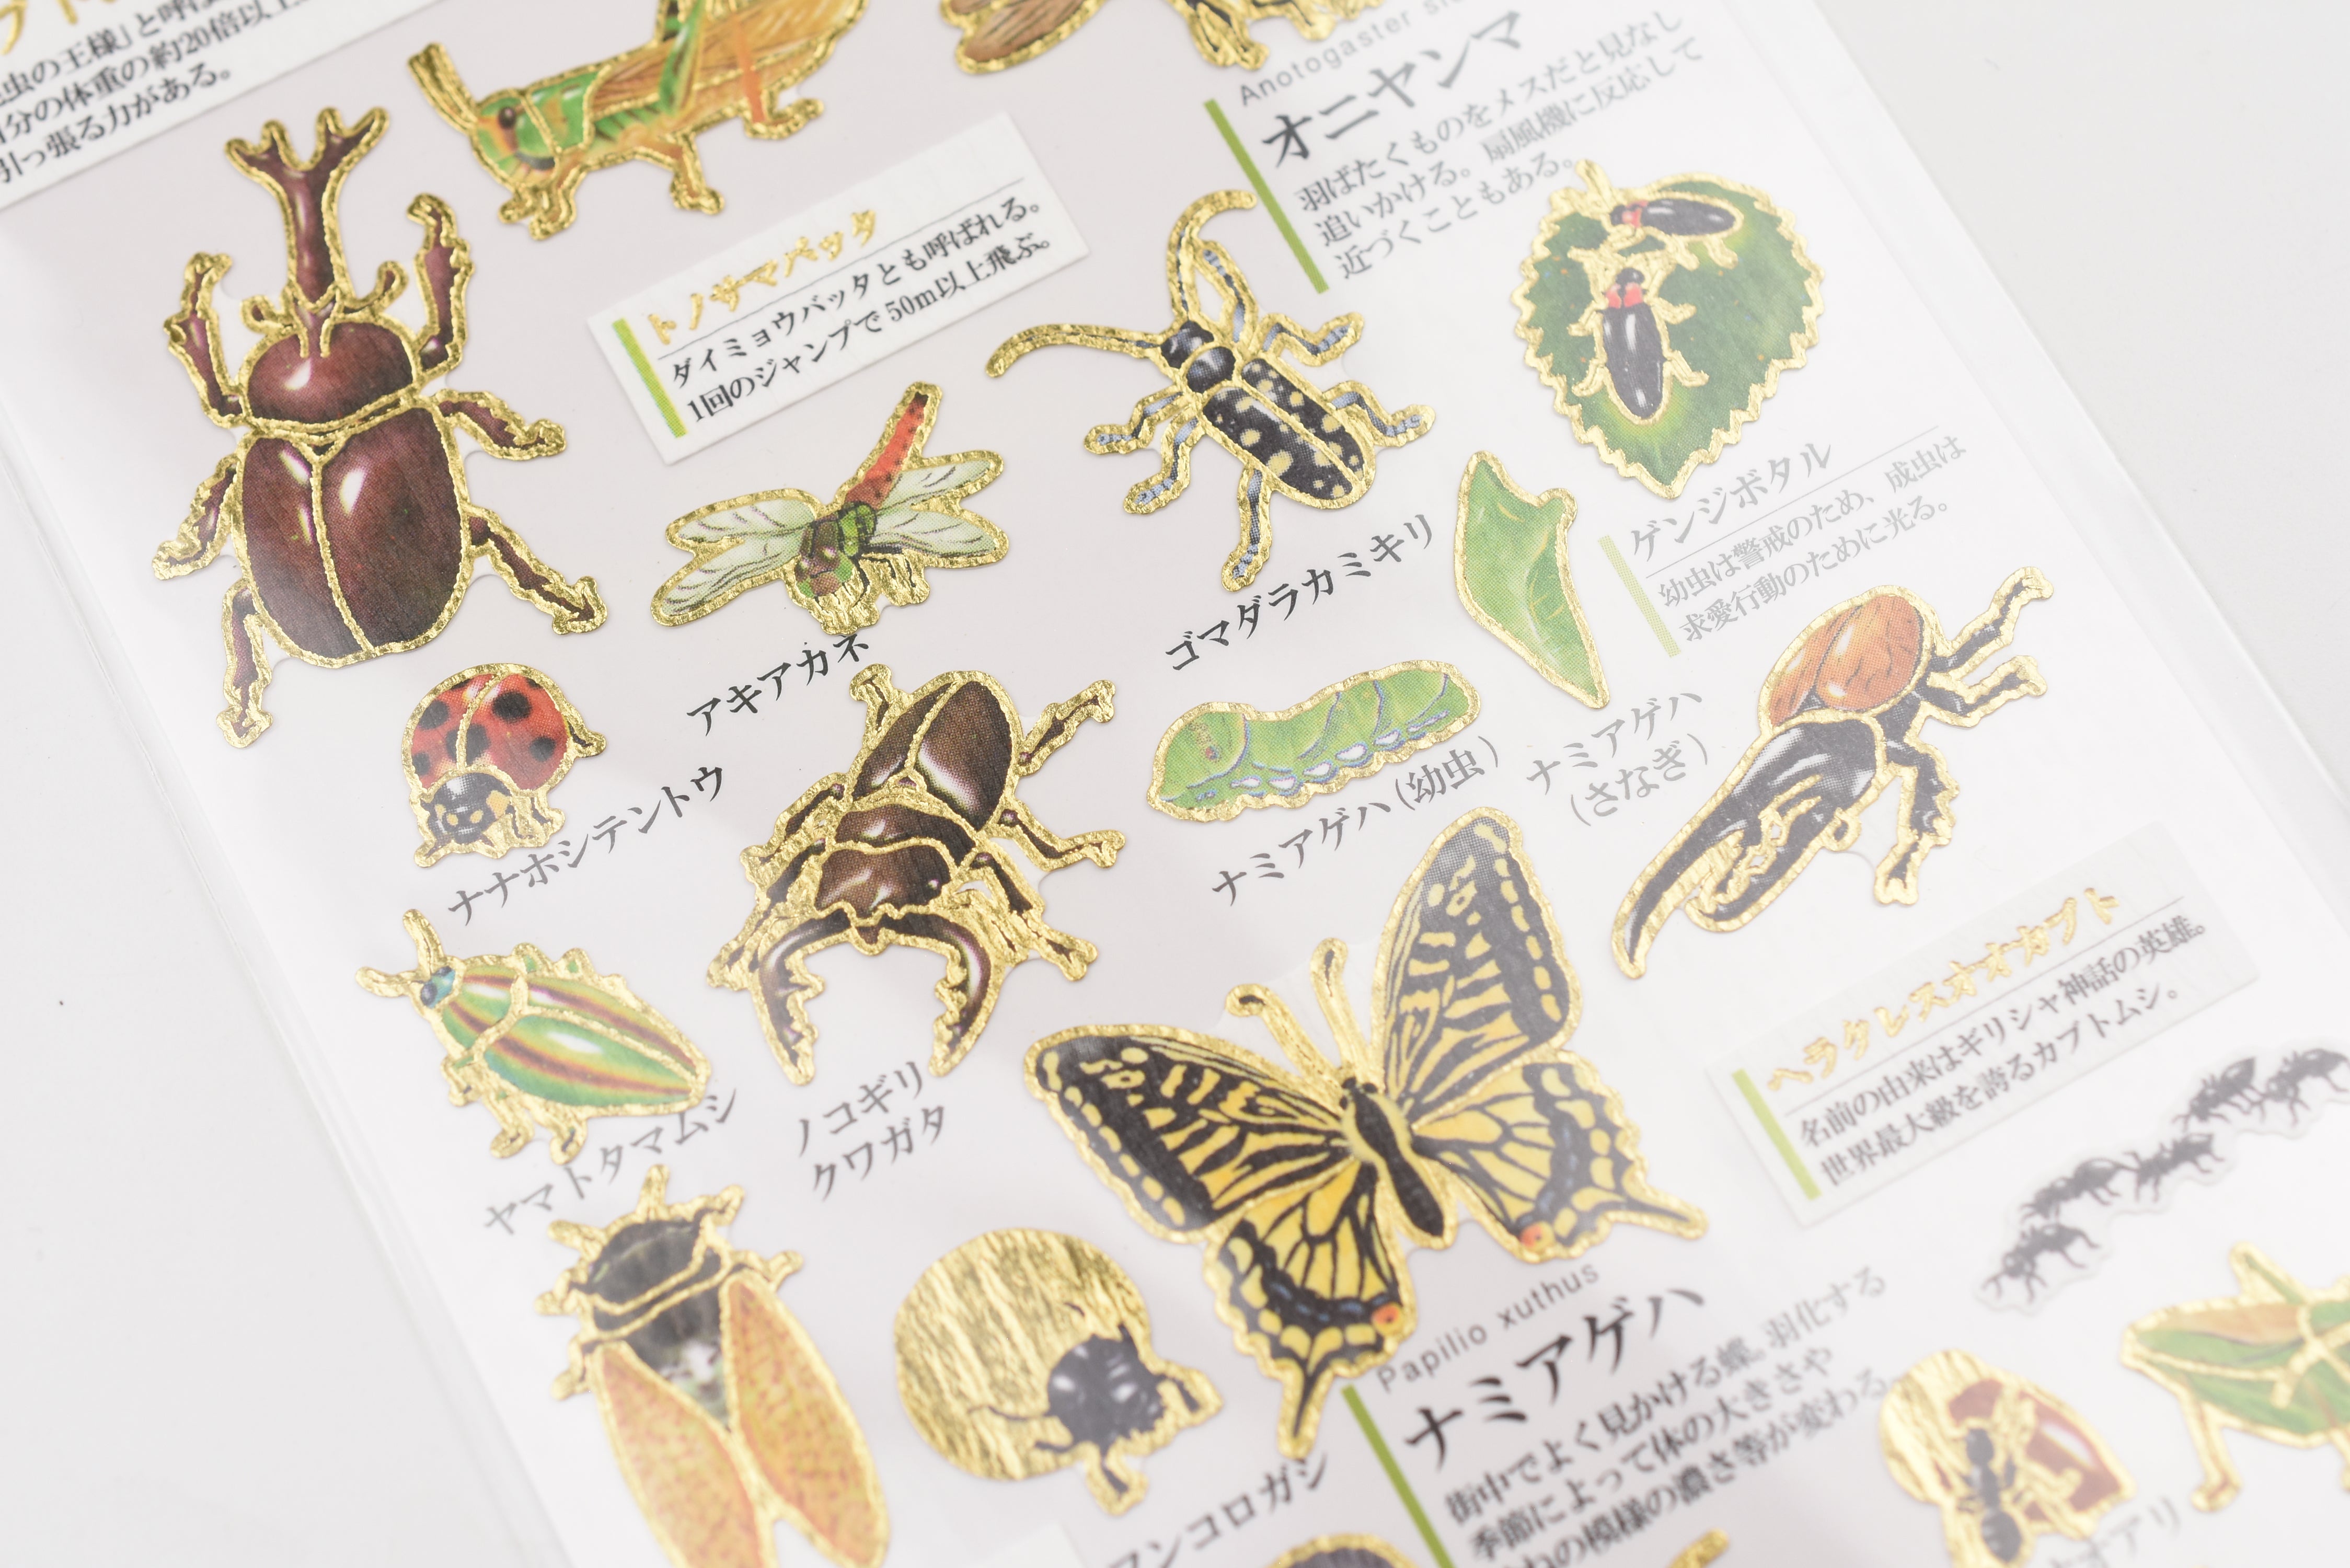 の王様」と呼ば
分の体重の約20倍以上
引っ張る力がある。
トノサマバッタ
ダイミョウバッタとも呼ばれる。
1回のジャンプで50m以上飛ぶ。
Anotogaster
オニヤンマ
羽ばたくものをメスだと見なし
追いかける。扇風機に反応して
近づくこともある。
ゲンジボタル
幼虫は警戒のため、成虫は
求愛行動のために光る。
ゴマダラカミキリ
アキアカネ
ナナホシテントウ
ナミアゲハ(幼虫)
ナミアゲハ
(さなぎ)
ヘラクレスオオカブト
名前の由来はギリシャ神話の英雄。
世界最大級を誇るカブトムシ。
ヤマトタマムシ
ノコギリ
クワガタ
Papilio xuthus
ナミアゲハ
街中でよく見かける蝶。羽化する
季節によって体の大きさや
の模様の濃さ等が変わる
ンコロガシ
アリ